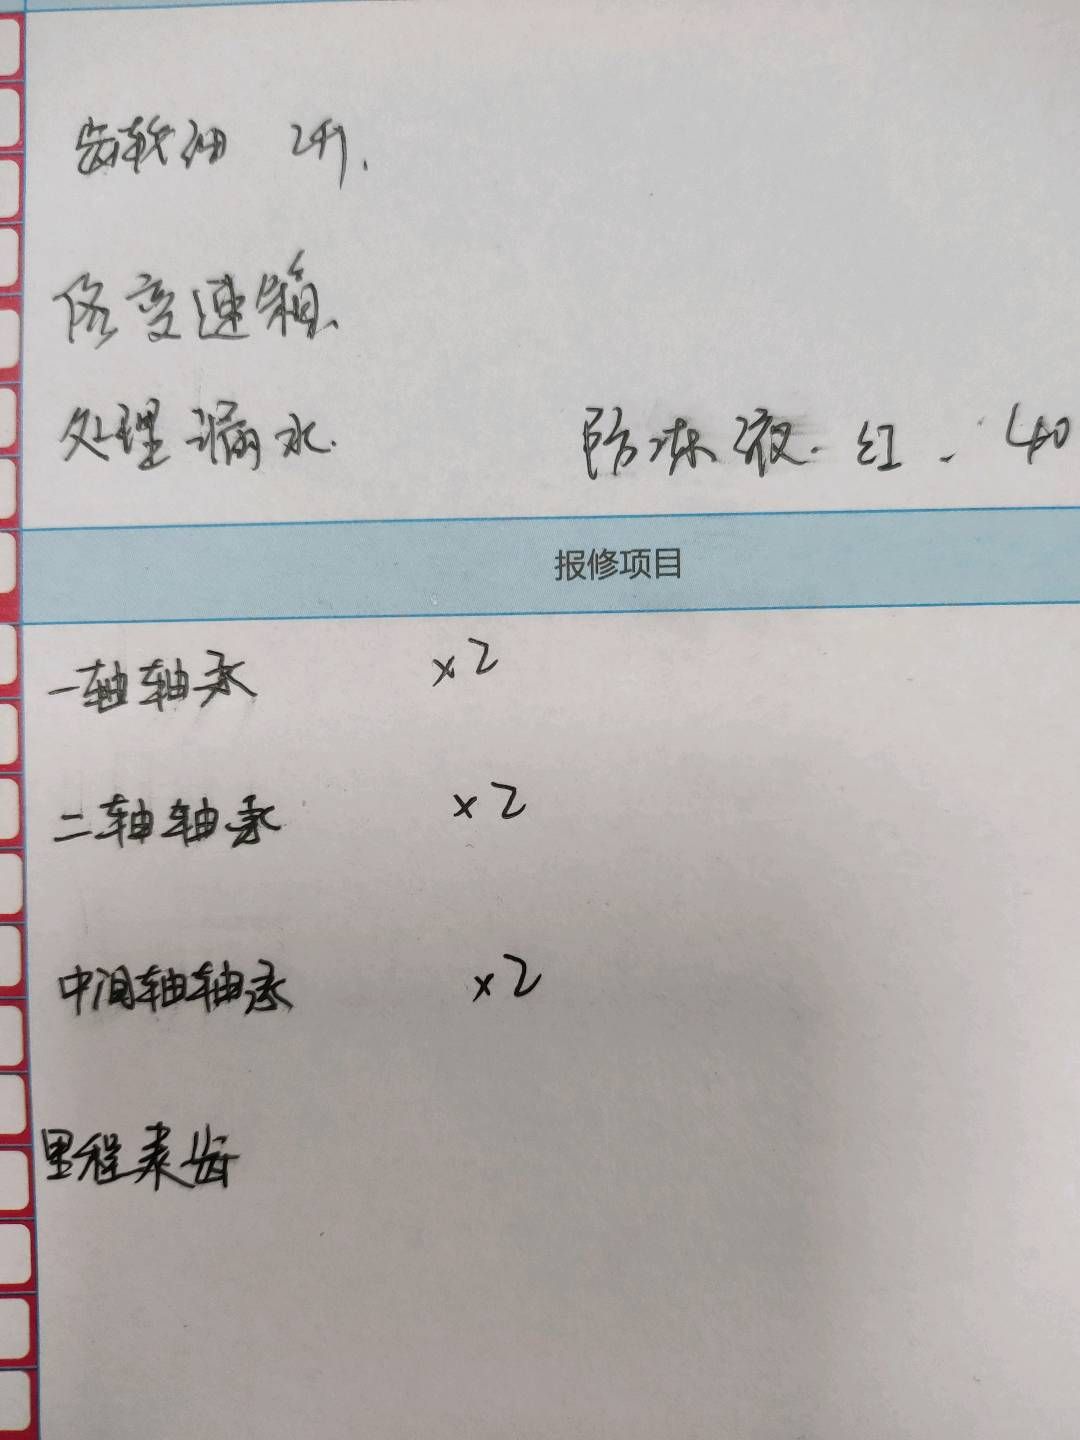 齿轮油 2升.
修变速箱.
处理漏水. 防冻液. 红. 40
报修项目
一轴轴承 ×2
二轴轴承 ×2
中间轴轴承 ×2
里程表齿